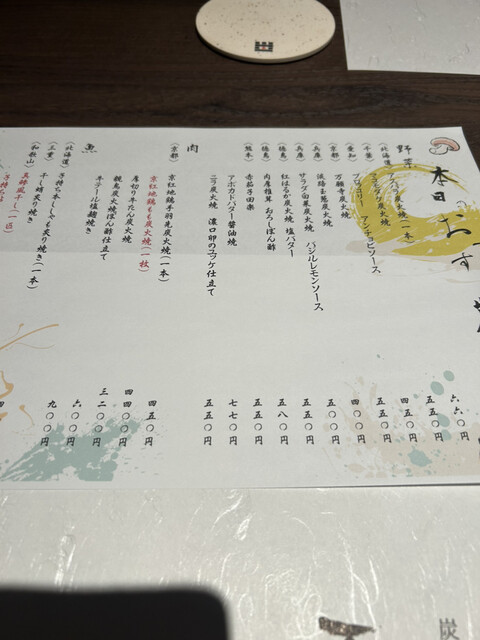 本日のおす
野菜
〈北海道〉アスパラ炭火焼(一本)
〈千葉〉
〈愛知〉ブロッコリー アンチョビソース
〈京都〉万願寺炭火焼
〈兵庫〉淡路玉葱炭火焼
〈兵庫〉サラダ白菜炭火焼 バジルレモンソース
〈徳島〉紅はるか炭火焼 塩バター
〈徳島〉肉厚椎茸 おろしぽん酢
〈熊本〉赤茄子田楽
アボカドバター醤油焼
ニラ炭火焼 濃口卵のユッケ仕立て
肉
〈京都〉京紅地鶏手羽先炭火焼(一本)
京紅地鶏もも炭火焼(一枚)
厚切り牛たん炭火焼
親鳥炭火焼ぽん酢仕立て
キテール塩麹焼き
魚
〈北海道〉子持ち本ししゃも炙り焼き(一本)
〈三重〉干し鱧炙り焼き
〈和歌山〉真鰺風干し(一匹)
六六〇円
五五〇円
四五〇円
四〇〇円
五〇〇円
五五〇円
五八〇円
五五〇円
七七〇円
五五〇円
四五〇円
四四〇〇円
三二〇〇円
六〇〇円
九〇〇円
炭